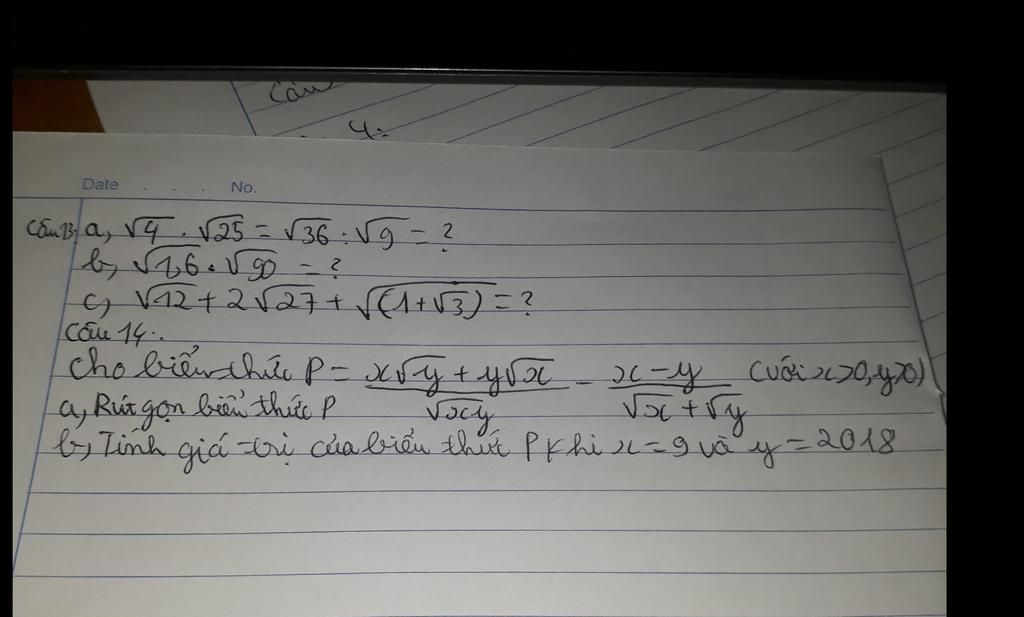 Câu
4:
Date . . . No.
Câu 13: a, √4 . √25 = √36 : √9 = ?
b, √1,6 . √90 = ?
c, √12 + 2√27 + √(1+√3) = ?
Câu 14:
Cho biểu thức P = (x√y + y√x)/√xy - (x - y)/(√x + √y) (với x>0, y>0)
a, Rút gọn biểu thức P
b, Tính giá trị của biểu thức P khi x = 9 và y = 2018